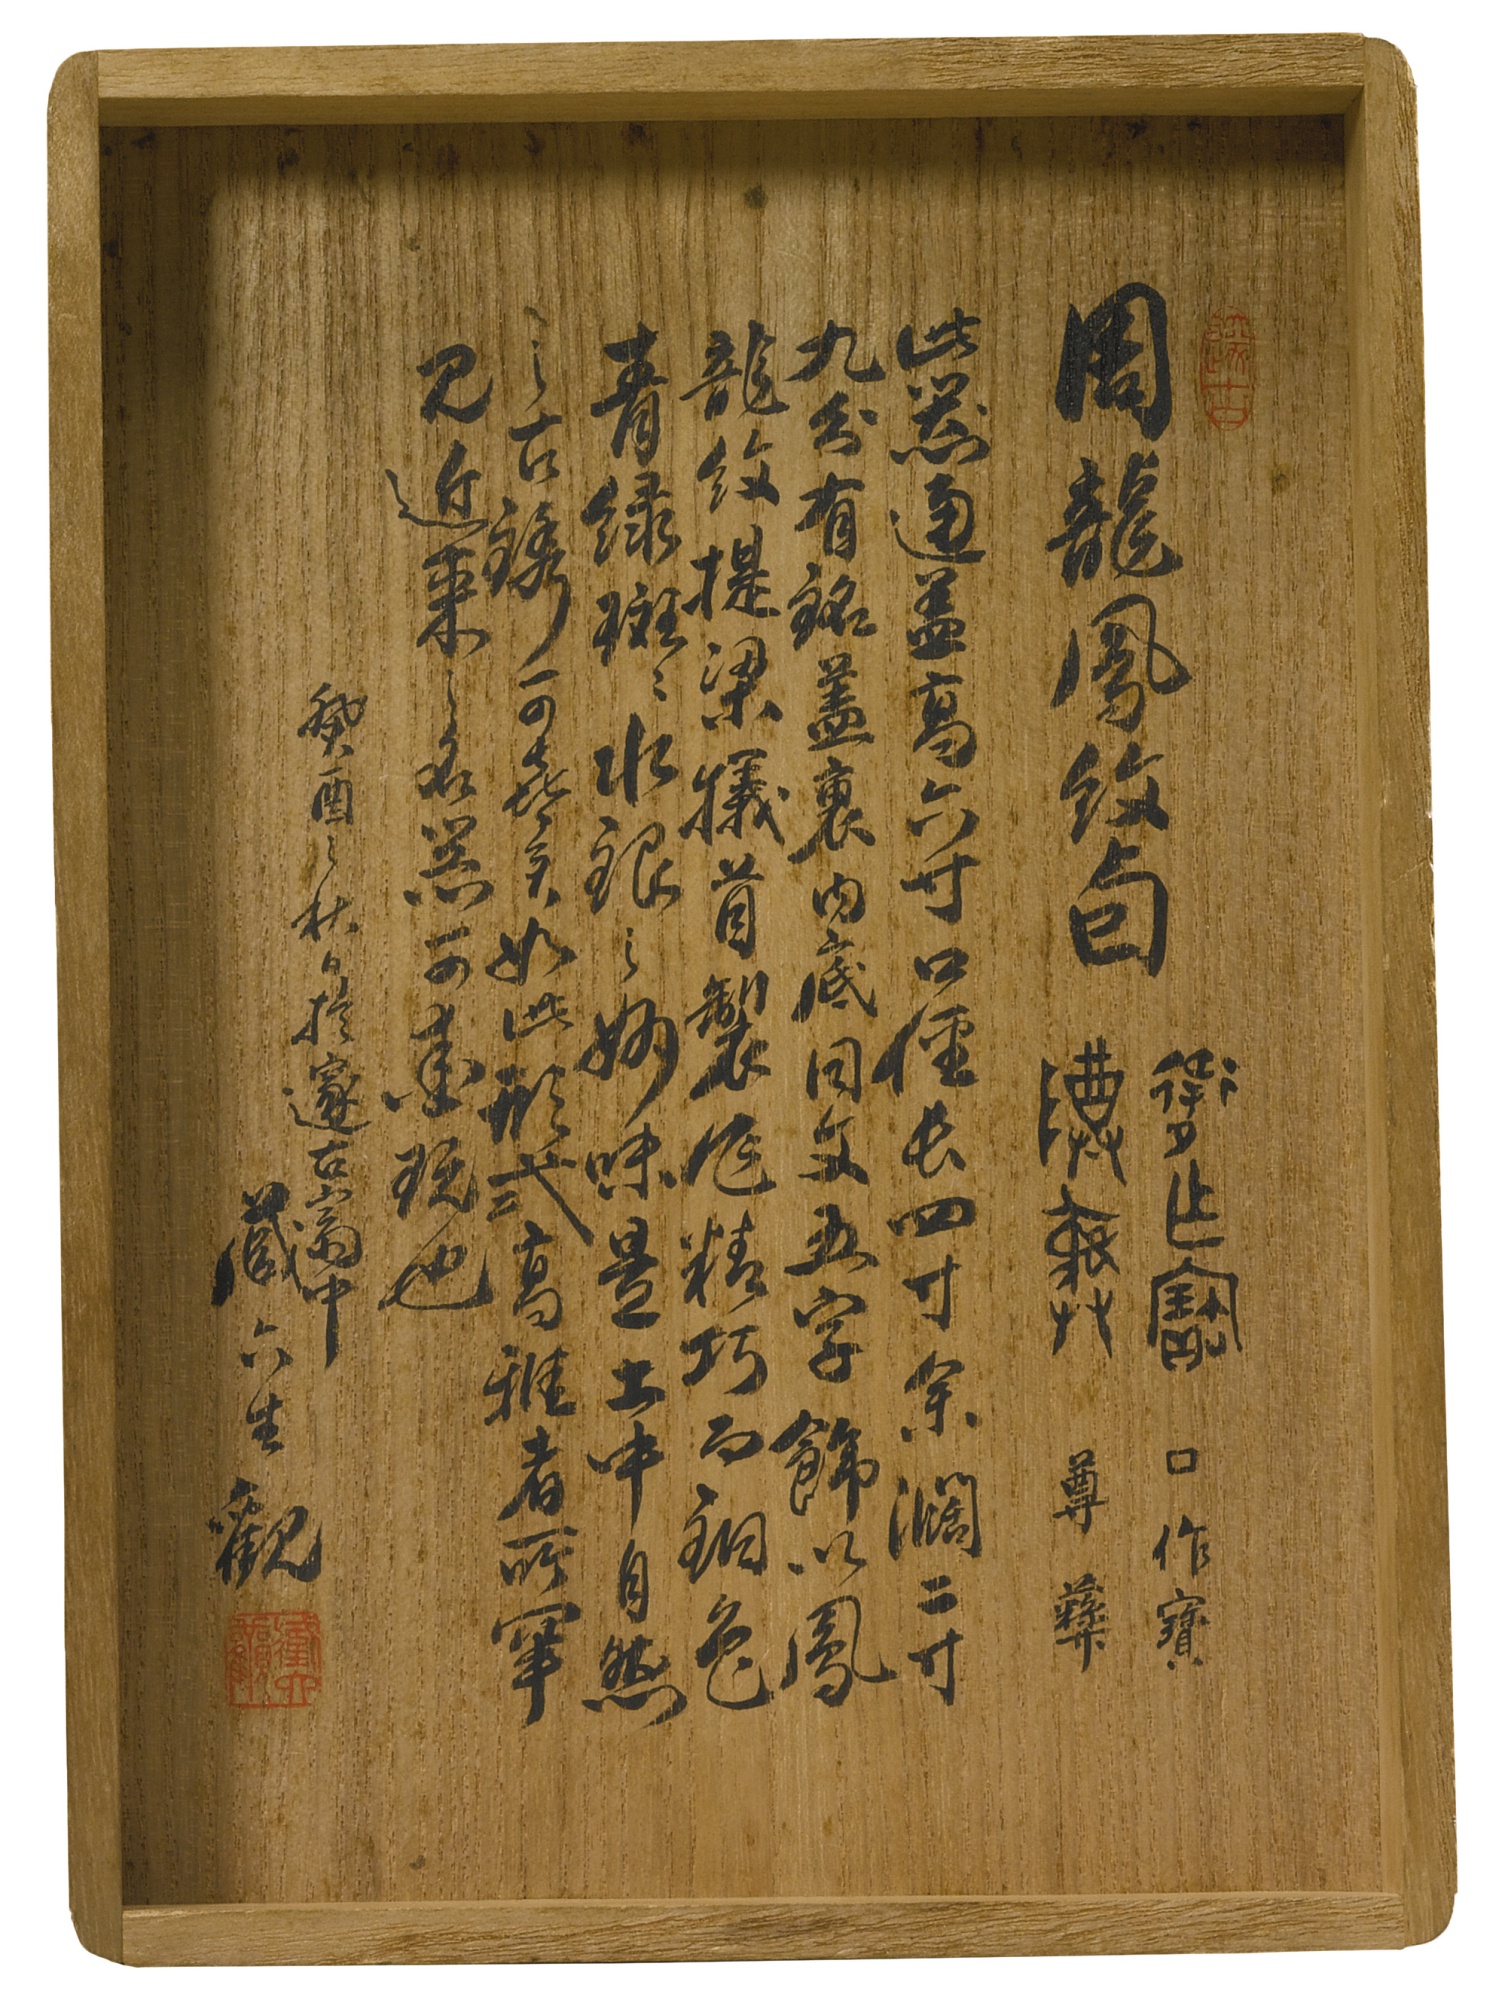 周龍鳳紋卣
作寶
尊彝
口作寶
尊彝
此器通蓋高六寸口徑長四寸余濶二寸
九分有銘蓋裏内底同文五字飾以鳳
龍紋提梁犠首製作精巧而銅色
青绿斑〻水銀之妙味是土中自然
之古銹可喜矣如此形式高雅者所罕
見近来之名器可要玩也
癸酉之秋日於邃古窩中
蔵六生觀